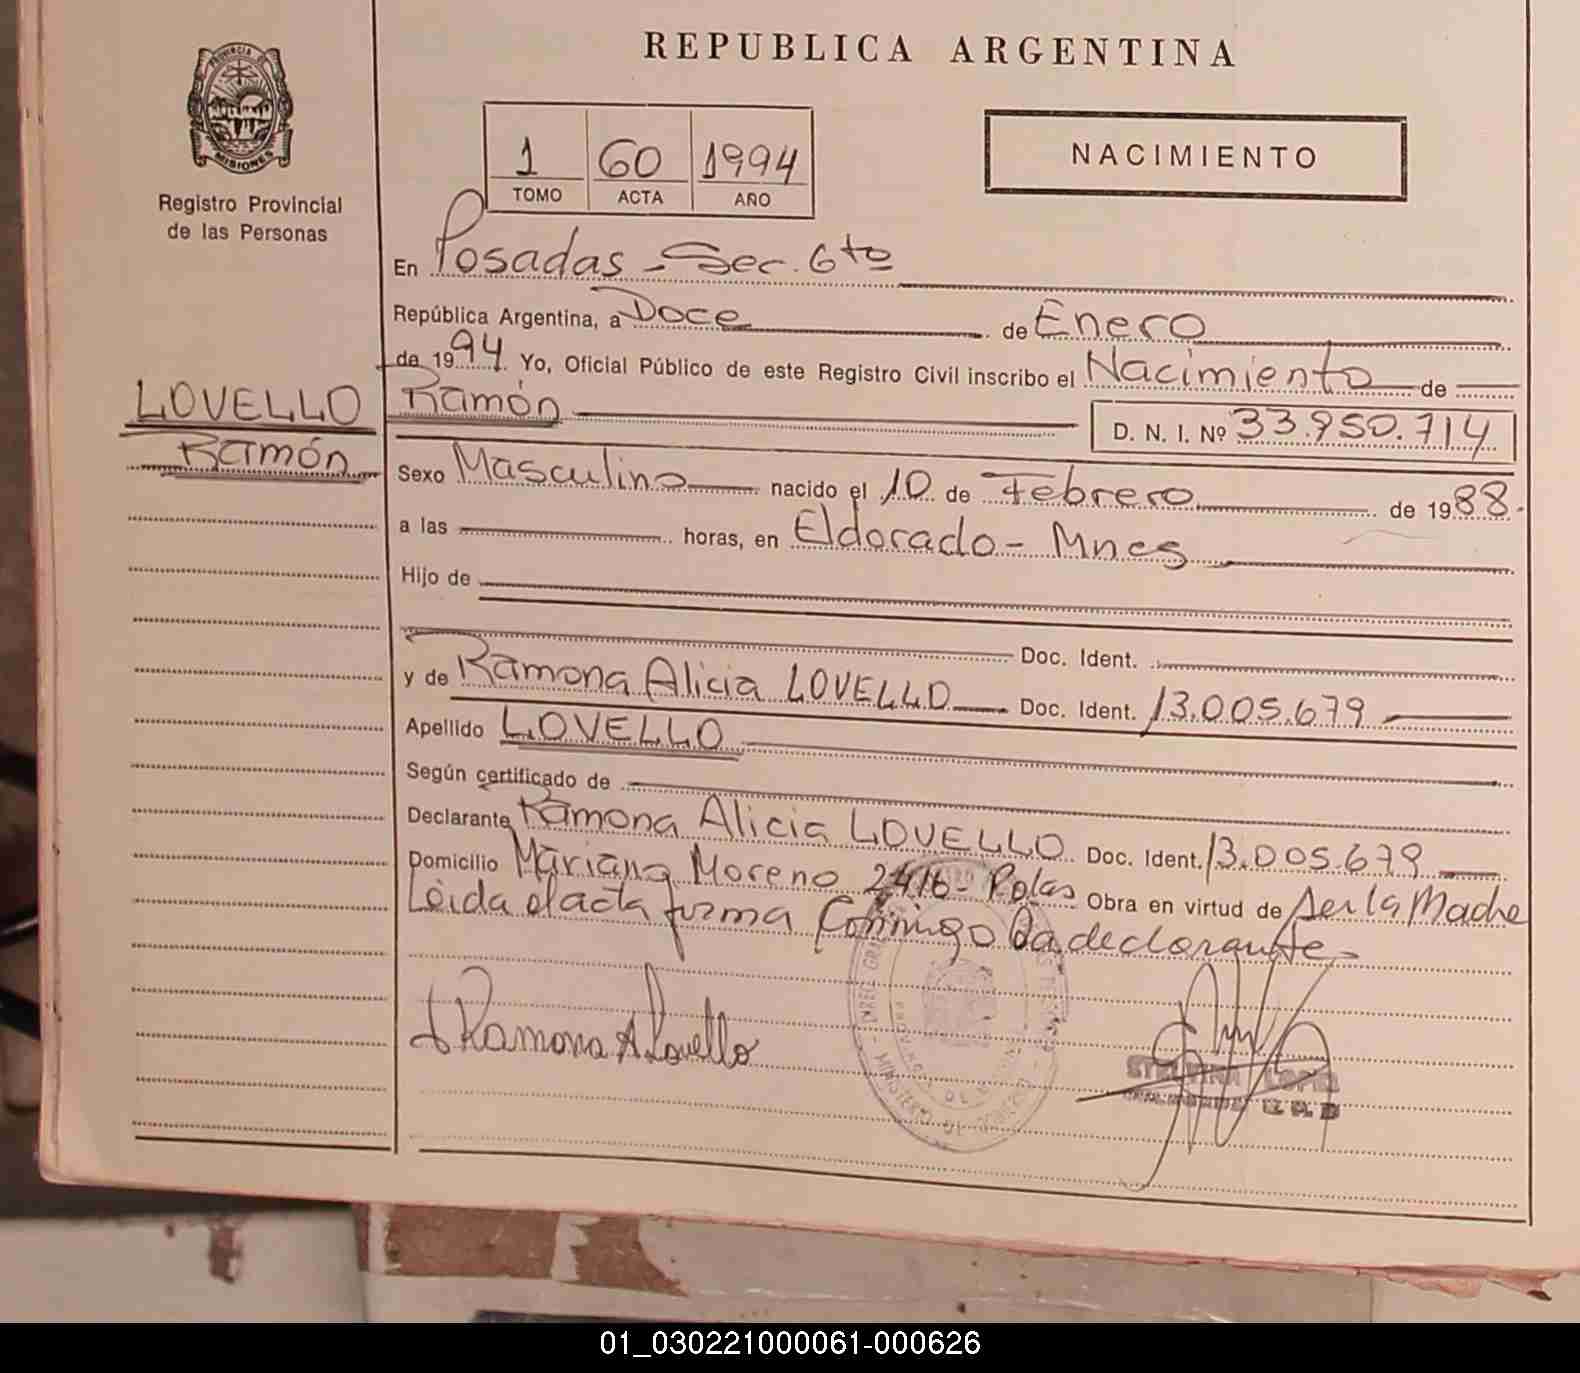 REPUBLICA ARGENTINA
PROVINCIA D
MISIONES
Registro Provincial
de las Personas
1 60 1994
TOMO ACTA AÑO
NACIMIENTO
En Posadas - Sec. 6ta
República Argentina, a Doce de Enero
de 1994 Yo, Oficial Público de este Registro Civil inscribo el Nacimiento de
LOVELLO
Ramón
Ramón D. N. I. Nº 33.950.714
Sexo Masculino nacido el 10 de Febrero de 1988.
a las horas, en Eldorado - Mnes
Hijo de
Doc. Ident.
y de Ramona Alicia LOVELLO Doc. Ident. 13.005.679
Apellido LOVELLO
Según certificado de
Declarante Ramona Alicia LOVELLO Doc. Ident. 13.005.679
Domicilio Mariano Moreno 2416 - Pdas Obra en virtud de Ser la Madre
Leida el acta firma Conmigo la declarante
Ramona A Lovello
LOPEZ
01_030221000061-000626